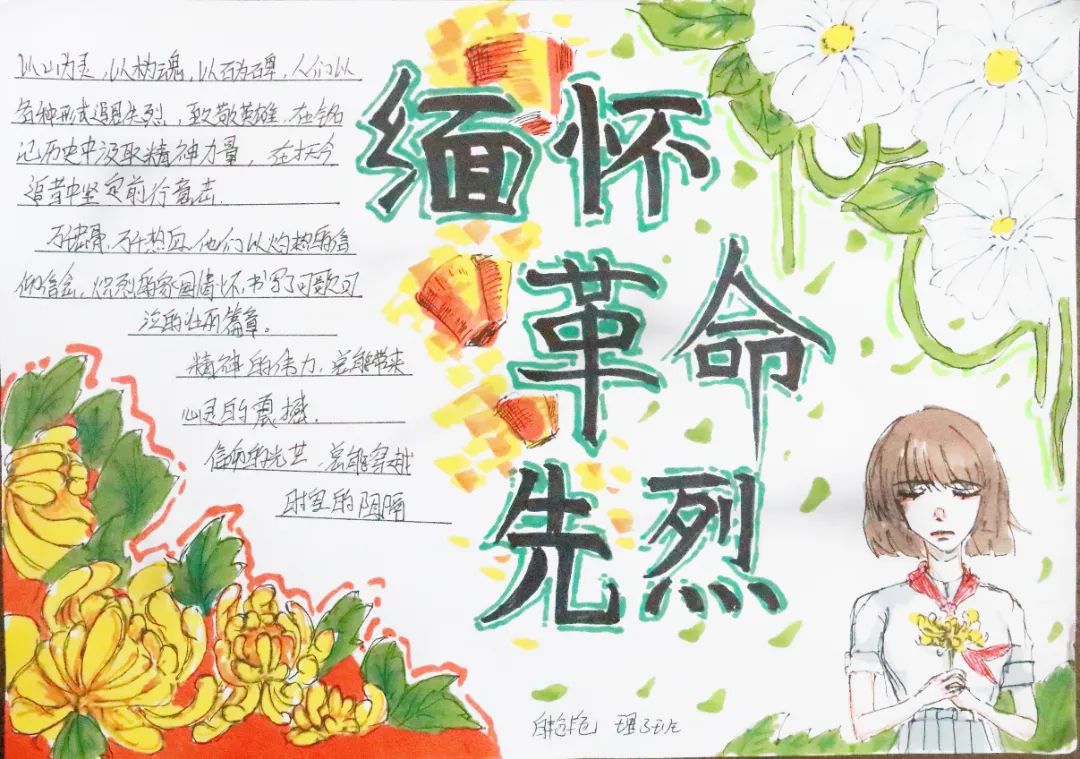 缅怀
革命
先烈
以山为灵，以林为魂，以石为碑，人们以
各种形式追思先烈，致敬英雄，在铭
记历史中汲取精神力量，在抚今
追昔中坚定前行意志.
不惧，不热血，他们以灼热的信
仰信念，炽烈的家国情怀，书写了可歌可
泣的壮丽篇章。
精神的伟力，总能带来
心灵的震撼.
信仰的光芒，总能穿越
时空的阻隔